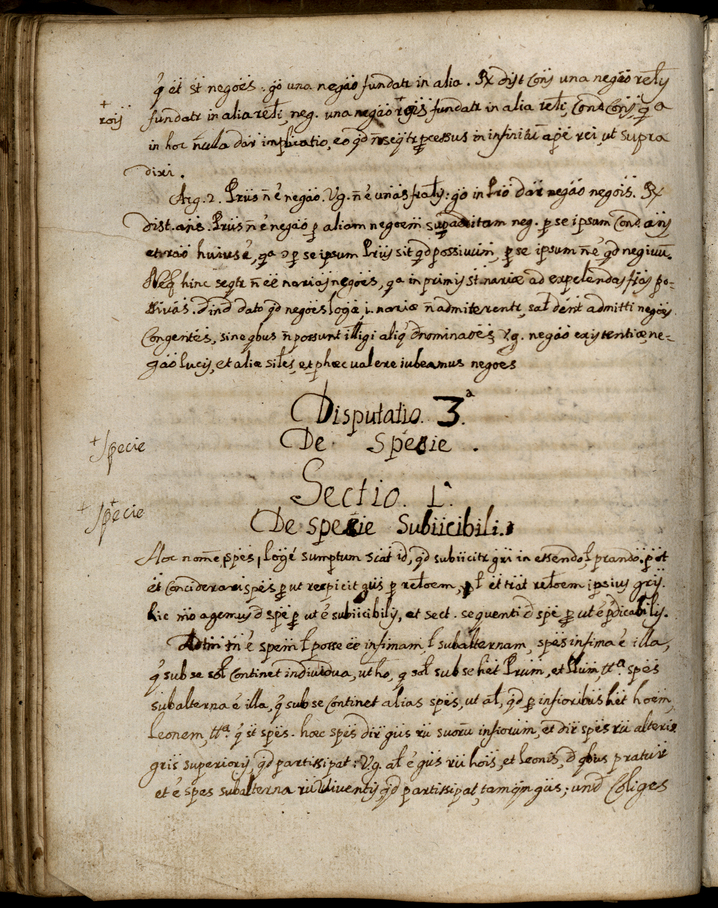 q̃ et st̃ negões: g̃o una negão fundatr in alia. Rx dist Conj una negão relĩj
+ roij
fundatr in alia relĩ, neg. una negão fundatr in alia relĩ, Conc Conj, q̃a
in hoc ñ ula dar implicatio, eo q̃d ñ seqtr ꝓcessus in infinitũ a pẽ rei, ut supra
dixi.
Arg. 2. Priis ñ é negão. Vg. ñ é unas : g̃o in Prio dar negão negõis. Rx
dist. ans. Priis ñ é negão p aliam negoem neg. p se ipsum Conc ans
et rão huius é, q̃a p se ipsum Priis sit q̃d possivum, p se ipsum ñ é q̃d negivũ.
Neq hinc seqtr ñ eẽ narias negões, q̃a in primis st nariæ ad expelendas po-
sivas. Dind dato q̃d negões loga nariæ ñ admiterentr, salt dent admitti negões
Congentes, sine qbus ñ possunt aliq̃ Dnominaões, Vg. negão existentiæ ne-
gão lucis, et aliæ siles, et p hæc valere iubeamus negões
Disputatio. 3.ª
De Specie.
+ Specie
Sectio. 1.ª
+ Specie
De specie Subiicibili.
Hoc nome, spes, logé sumptum scat id, q̃d subiicitr gri in essendo, l prando. pot
et Conciderari spes ꝓut respicit gus p reloem, l et trat reloem ipsius gris.
hic mo agemus d spe ꝓut é subiicibilis, et sect. sequenti d spe, ꝓut é pdicabilis.
tñ é spem l posse eẽ infimam, l subalternam, spes infima é illa,
q̃ sub se sol Continet individua, ut ho, q sol sub se het Prum, et Plum, ttª. spes
subalterna é illa, q̃ sub se Continet alias spes, ut al, q̃d p inferioribus het hoem,
leonem, ttª. q̃ st spes. hoc spes dir gus rũ suoru inforum, et dir spes rũ alterius
gris superioris, q̃d partissipat: Vg. al é gus rũ hois, et leonis, d qbus pratur
et é spes subalterna rũ viventis, q̃d partissipat, tamqm gus; und Coliges